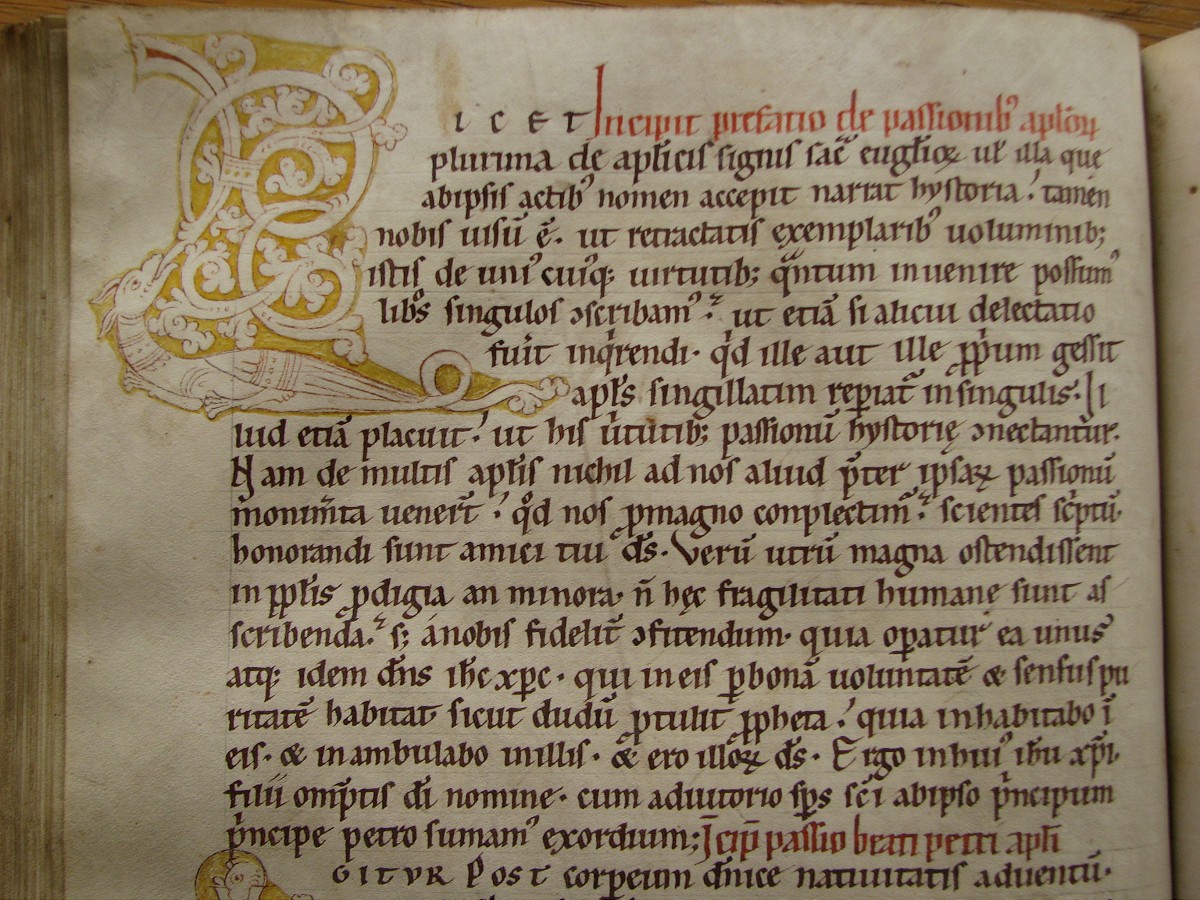 LICET Incipit prefatio de passionib' apl̄oꝝ
plurima de apl̄icis signis sac̄ eugl̄ioꝝ ul̓ illa que
ab ipsis actib' nomen accepit narrat hystoria. tamen
nobis uisū ē. ut retractatis exemplarib' uoluminib;
istis de uni' cuiq; uirtutib; qͣntum inuenire possum'
lib̊s singulos ɔscribam'. ut etiā si alicui delectatio
fuīt inqͥrendi. qd̓ ille aut ille ꝓp̄um gessit
apl̄s singillatim repiat᷑ in singulis. Il
lud etiā placuit. ut his ūtutib; passionū hystorię ɔnectant᷑ur.
Nam de multis apl̄is nichil ad nos aliud p̄ter ipsaꝝ passionū
monim̄ta uener̄t. qͦd nos ꝓmagno conplectim᷑. scientes sc̓ptū.
honorandi sunt amici tui d̄s. Verū utrū magna ostendissent
in ꝓpl̄is ꝓdigia an minora. n̄ hęc fragilitati humane sunt as
scribenda. s; a nobis fidelit̄ ɔfitendum. quia oꝑatur ea unus
atq; idem dn̄s ih̄c xp̄c. qui in eis ꝑ bonā uoluntatē & sensus pu
ritatē habitat sicut dudū ꝓtulit ꝓpheta. quia inhabitabo ī
eis. & inambulabo in illis. & ero illoꝝ d̄s. Ergo in hui' ih̄u xp̄i.
filii omp̄tis dī nomine. cum adiutorio sp̄s sc̄i ab ipso pͥncipum
pͥncipe petro sumam' exordium; Īcip̄ passio beati petri apl̄i
GITVR Post corpeum dn̄ice natiuitatis aduentū.